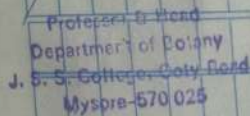 Professor & Head
Department of Botany
J. S. S. College, Ooty Road
Mysore-570 025